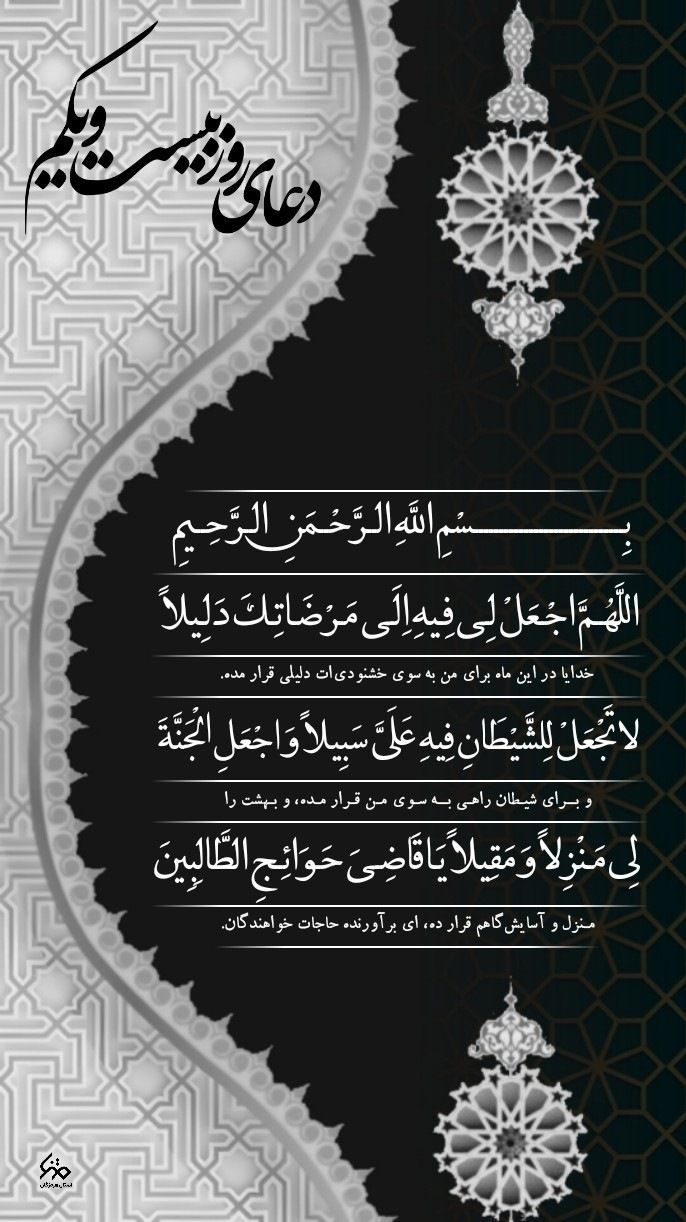 دعای روز بیست و یکم
بِسْمِ اللَّهِ الرَّحْمَنِ الرَّحِیمِ
اللَّهُمَّ اجْعَلْ لِی فِیهِ اِلَی مَرْضَاتِكَ دَلِیلاً
خدایا در این ماه برای من به سوی خشنودی‌ات دلیلی قرار مده.
لا تَجْعَلْ لِلشَّیْطَانِ فِیهِ عَلَیَّ سَبِیلاً وَ اجْعَلِ الْجَنَّةَ
و برای شیطان راهی به سوی من قرار مده، و بهشت را
لِی مَنْزِلاً وَ مَقِیلاً یَا قَاضِیَ حَوَائِجِ الطَّالِبِینَ
منزل و آسایش‌گاهم قرار ده، ای برآورنده حاجات خواهندگان.
استان هرمزگان